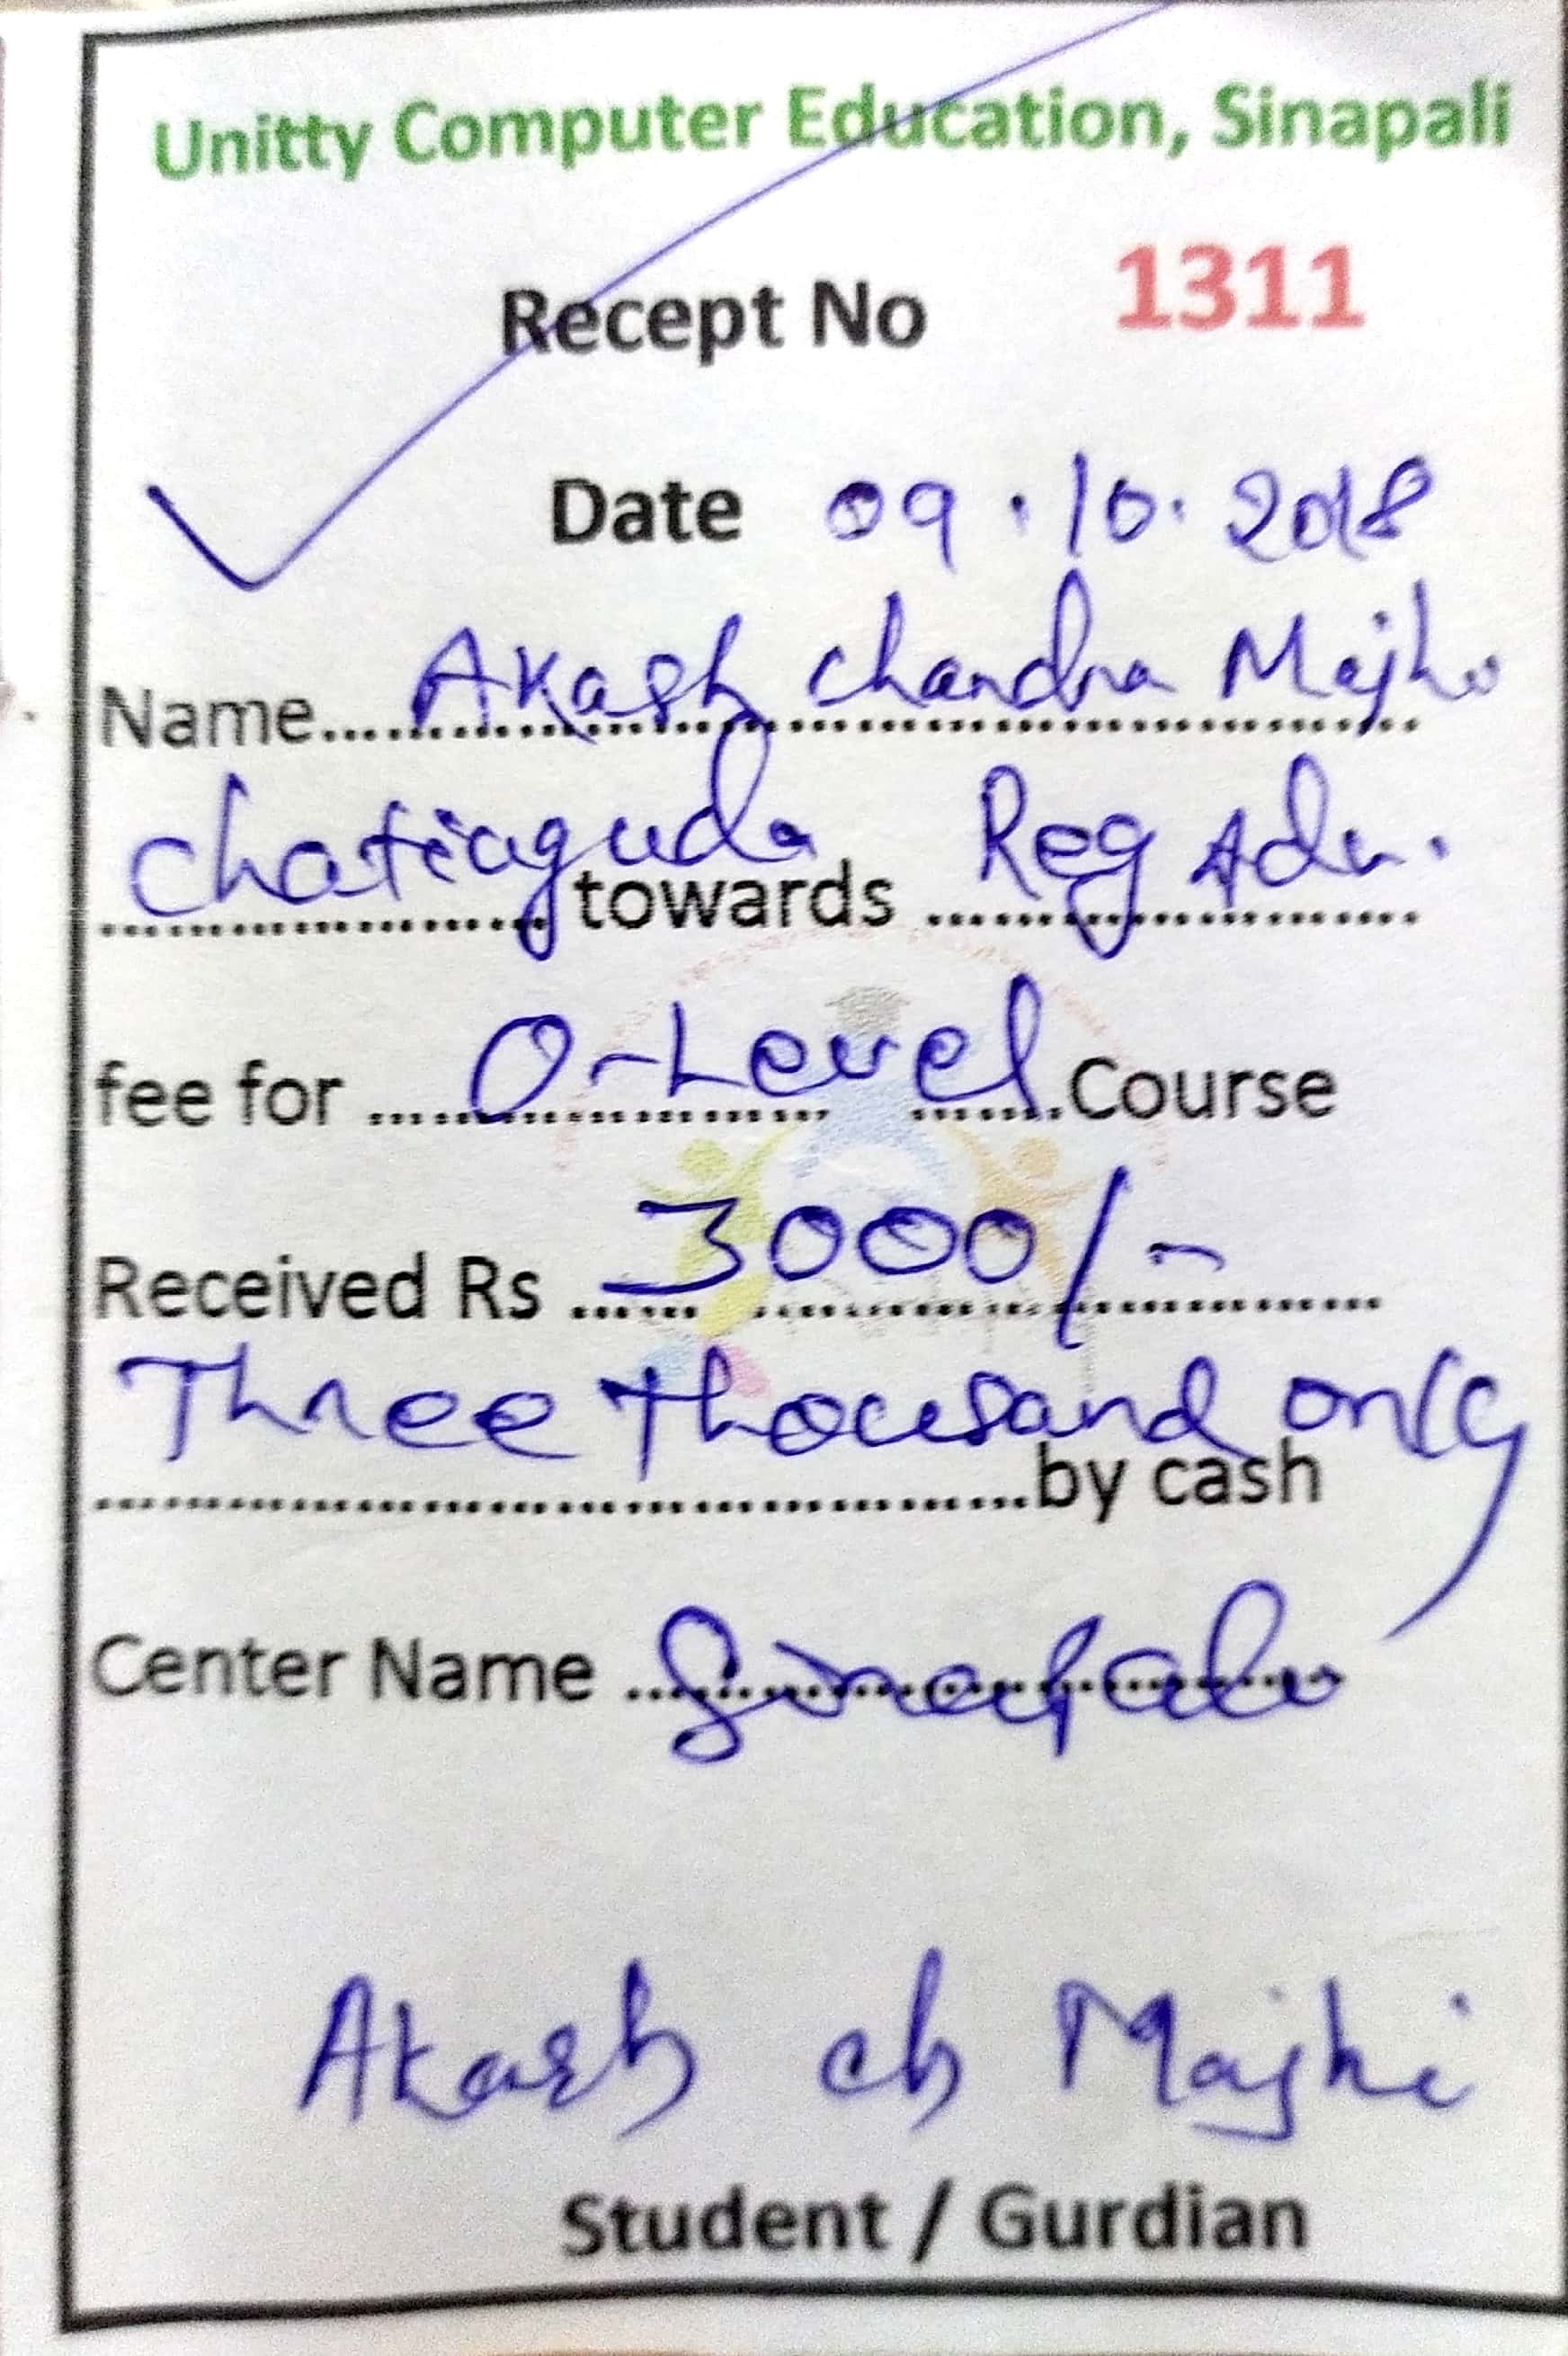 Unitty Computer Education, Sinapali
Recept No 1311
Date 09.10.2018
Name....Akash Chandra Majhi
Chatiaguda towards Reg Adm.
fee for O-Level Course
Received Rs 3000/-
Three thousand only
by cash
Center Name Sinapali
Akash ch Majhi
Student / Gurdian